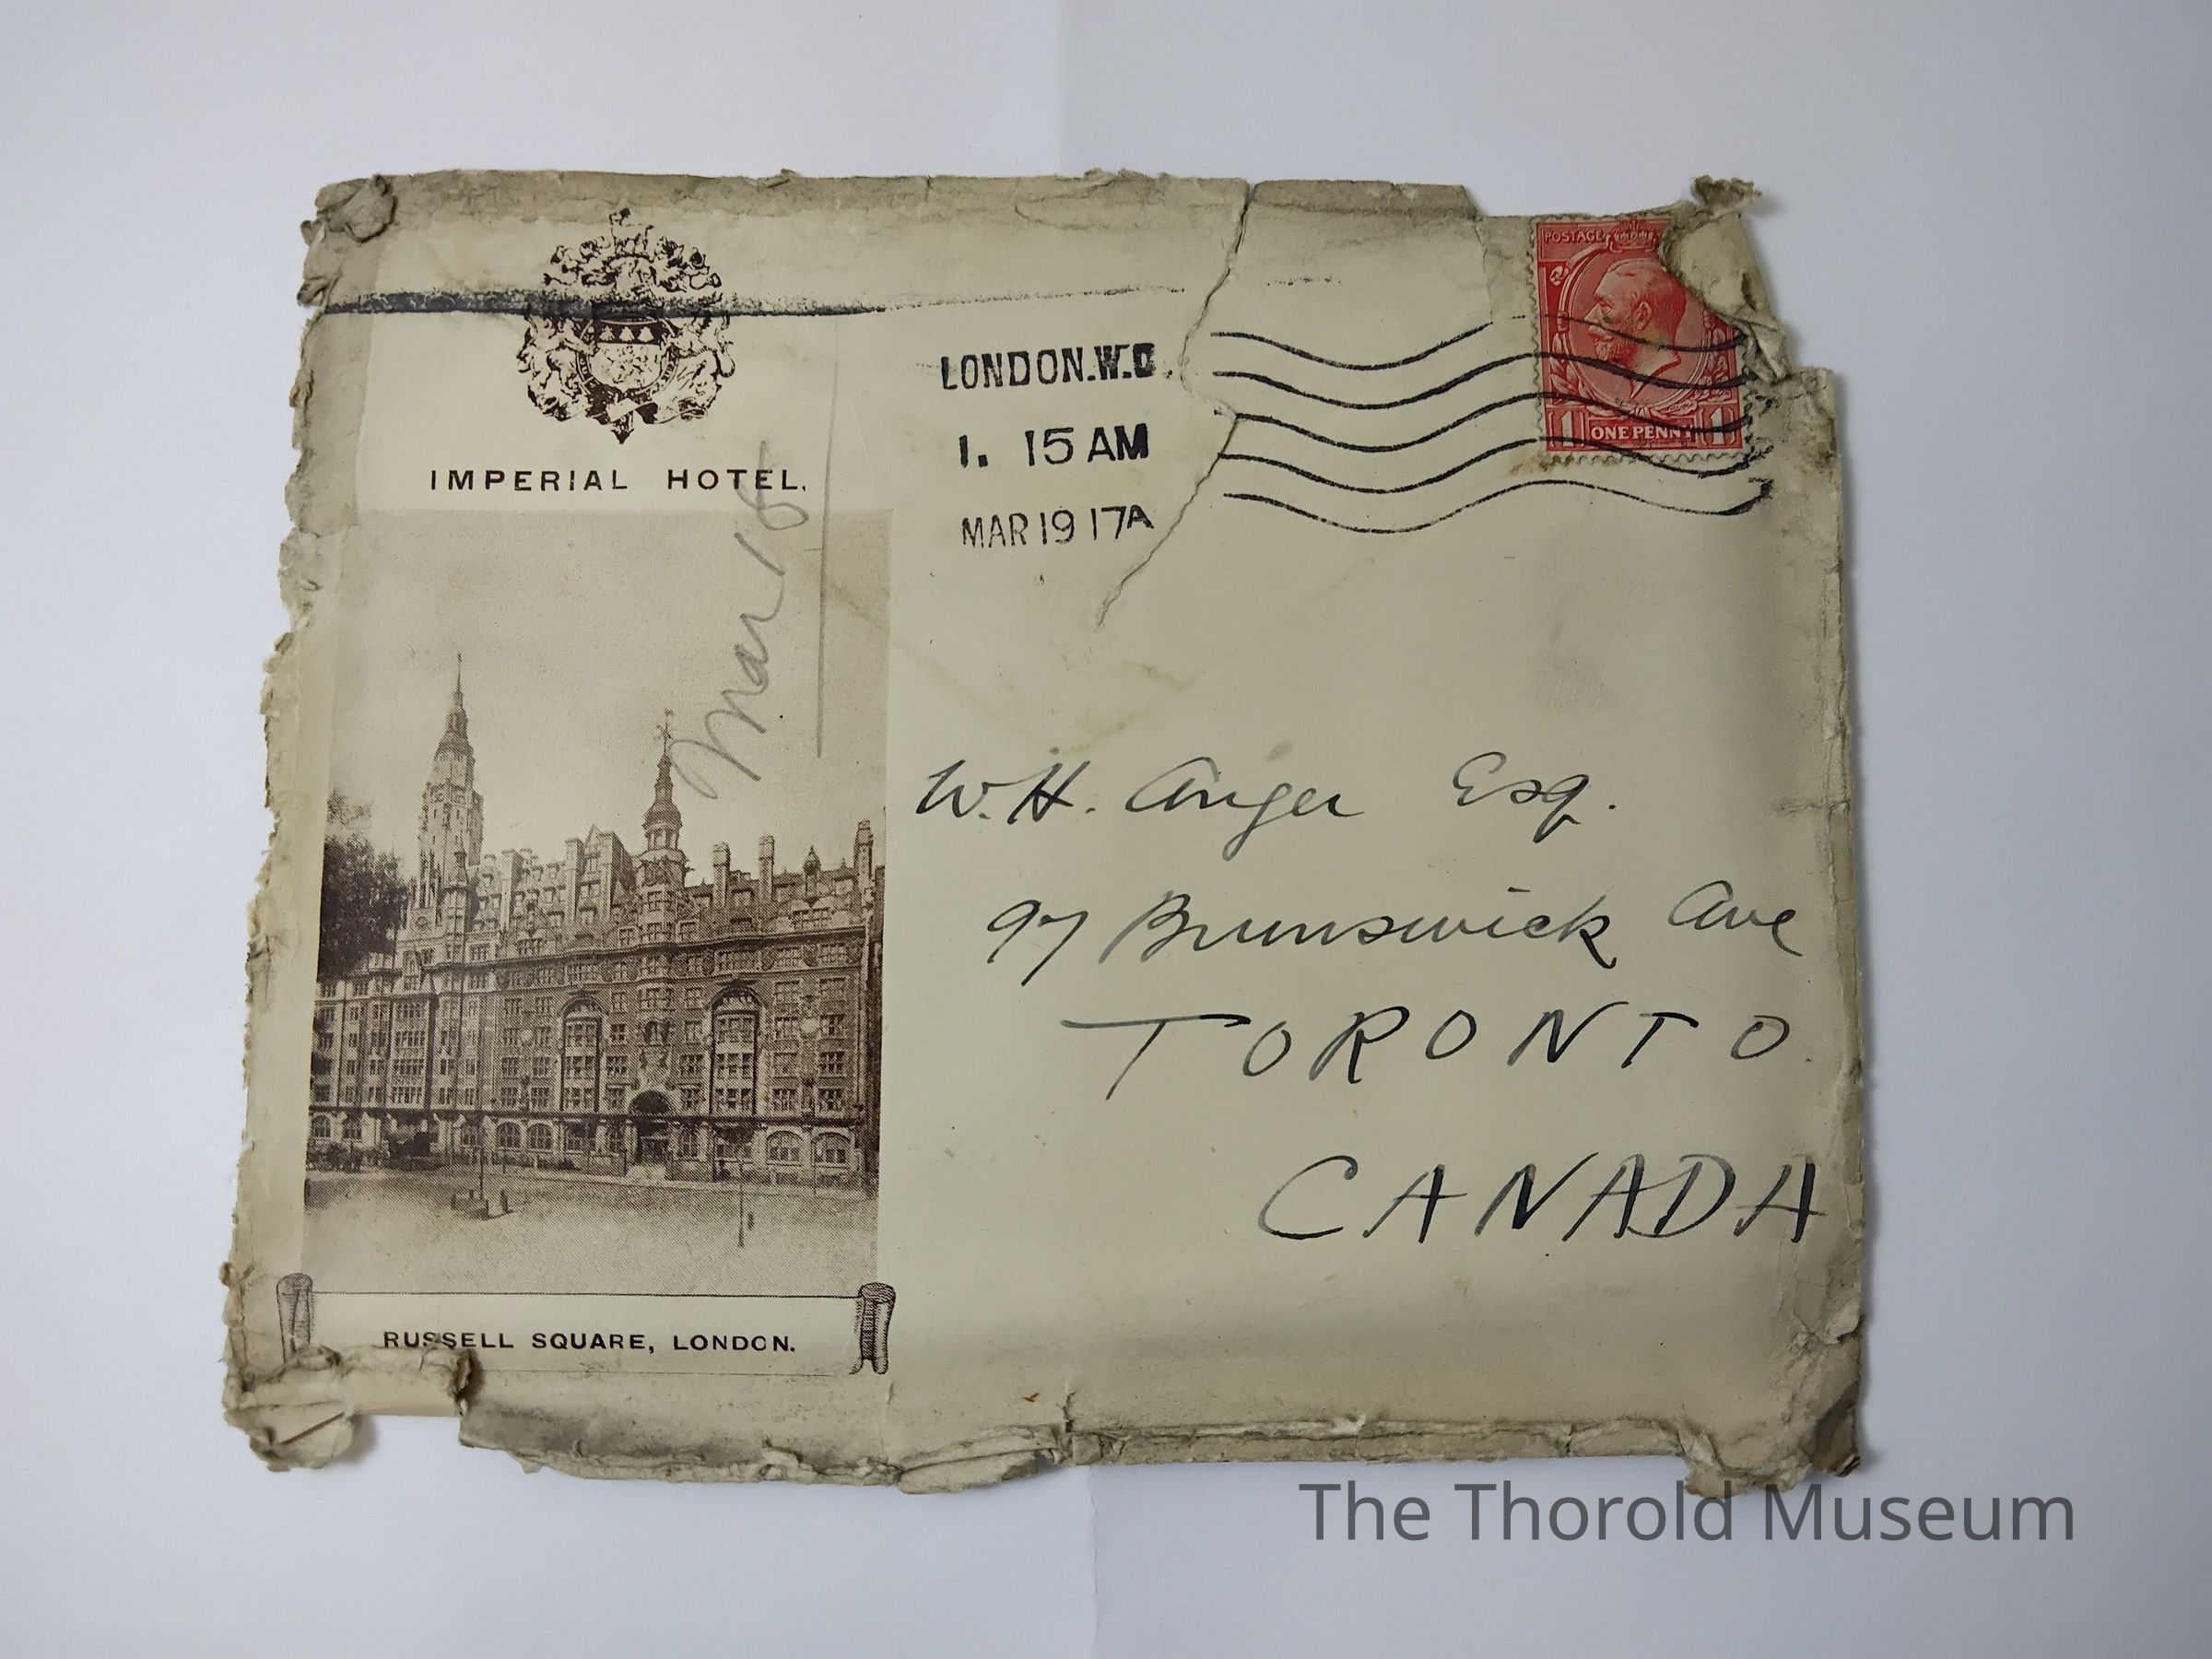 IMPERIAL HOTEL.
Mar 18
RUSSELL SQUARE, LONDON.
LONDON.W.C.
1. 15 AM
MAR 19 17A
POSTAGE
1 ONE PENNY 1
W.H. Anger Esq.
97 Brunswick Ave
TORONTO.
CANADA
The Thorold Museum